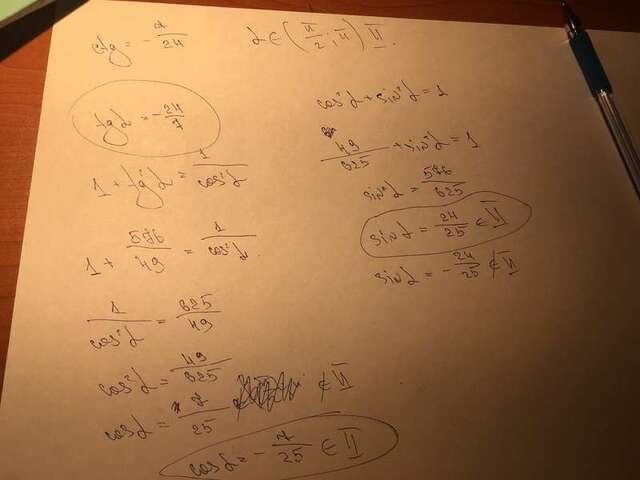 ctg = -7/24
α ∈ (π/2; π) II.
tgα = -24/7
1 + tg²α = 1/cos²α
1 + 576/49 = 1/cos²α.
1/cos²α = 625/49
cos²α = 49/625
cosα = 7/25 ∉ II
cosα = -7/25 ∈ II
cos²α + sin²α = 1
49/625 + sin²α = 1
sin²α = 576/625
sinα = 24/25 ∈ II
sinα = -24/25 ∉ II